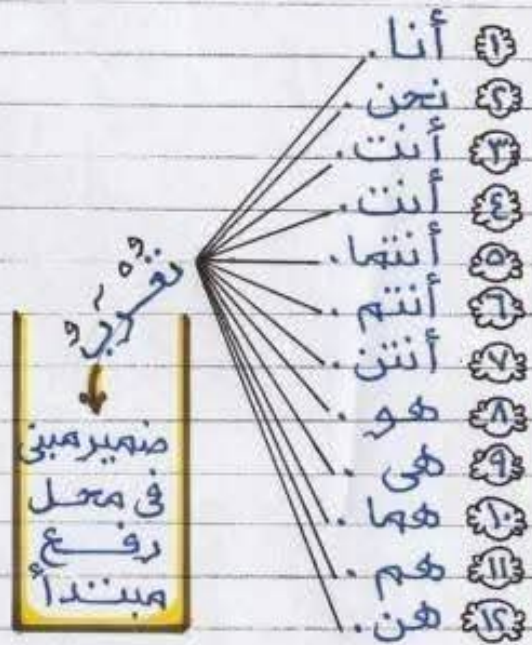 ١ أنا.
٢ نحن.
٣ أنت.
٤ أنت.
٥ أنتما.
٦ أنتم.
٧ أنتن.
٨ هو.
٩ هى.
١٠ هما.
١١ هم.
١٢ هن.
تُعْرَبُ
ضمير مبنى
فى محل
رفع
مبتدأ